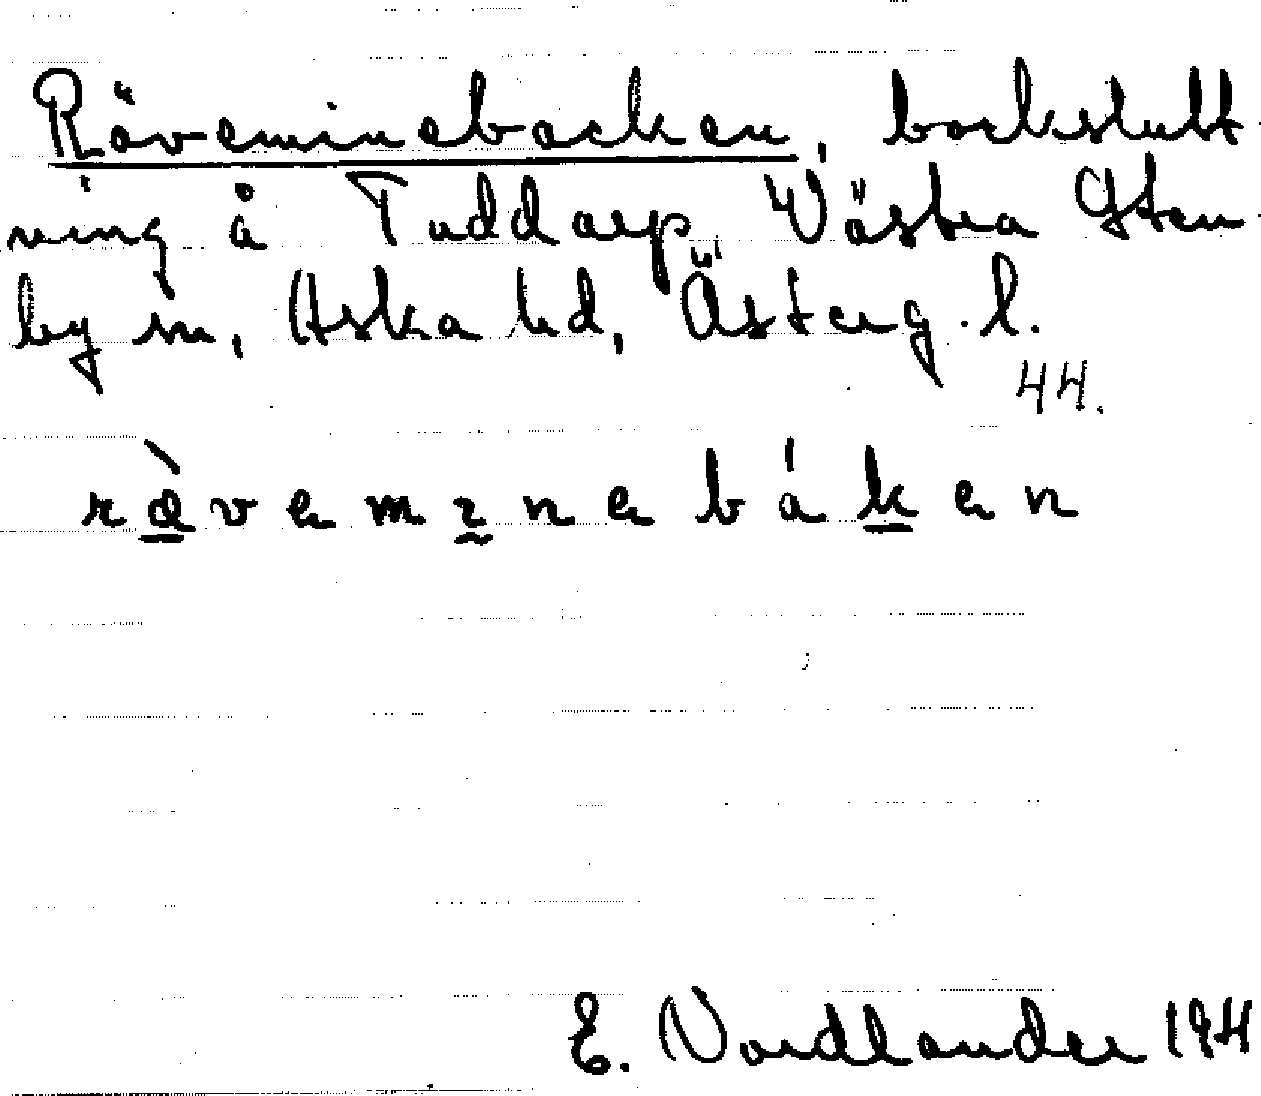 Räveminebacken, backslutt
ning å Taddarp Västra Sten
by sn, Aska hd, Österg. l.
44.
rävemınebáken
E. Nordlander 194